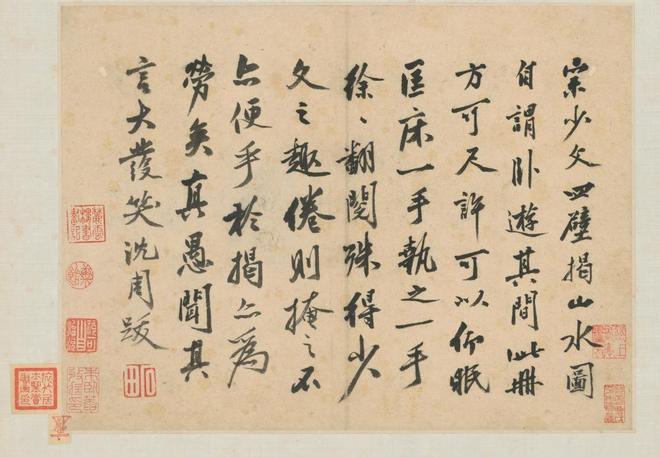 宗少文四壁揭山水圖
自謂卧遊其間此冊
方可尺許可以仰眠
匡床一手執之一手
徐、翻閱殊得少
文之趣倦則掩之不
亦便乎於揭亦為
勞矣真愚聞其
言大發笑沈周跋
石田